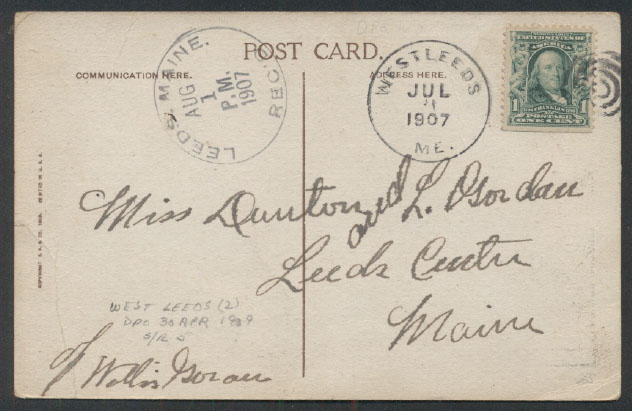 POST CARD.
COMMUNICATION HERE.
ADDRESS HERE.
LEEDS, MAINE.
AUG
1
P.M.
1907
REC'D.
WEST LEEDS
JUL
1907
ME.
UNITED STATES OF
AMERICA
1
FRANKLIN
POSTAGE
ONE CENT
1
Miss Dunton and L.
Leeds Centre
Maine
WEST LEEDS (2)
DPO 30 APR 1909
S/R 5
Willis